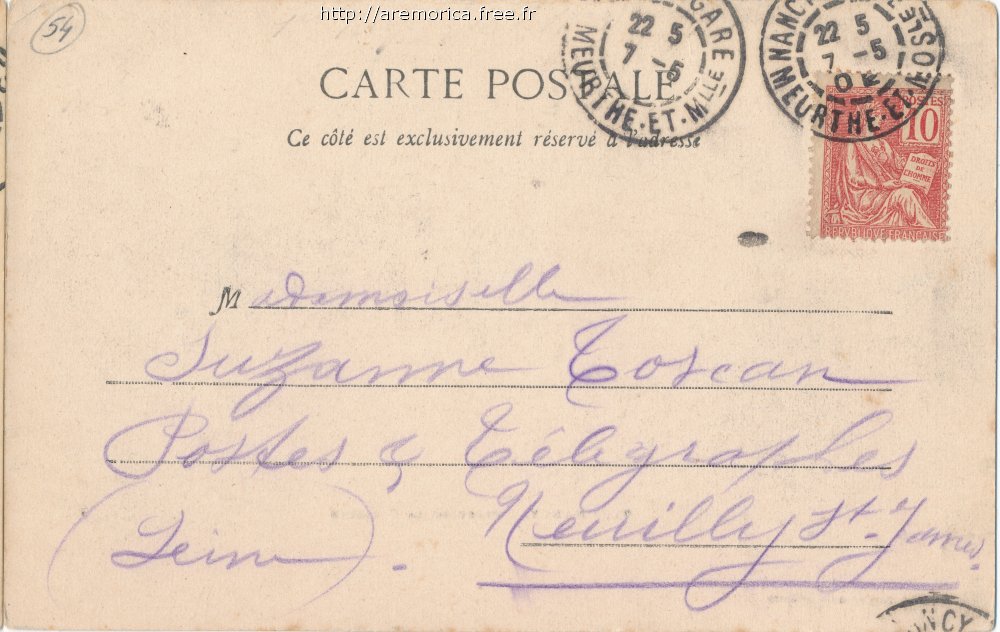 http://aremorica.free.fr
54
GARE
22 5
7 - 5
MEURTHE-ET-MLLE
NANCY
22 5
7 - 5
0
MEURTHE-ET-MOSELLE
CARTE POSTALE
Ce côté est exclusivement réservé à l'adresse
POSTES
10
DROITS
DE
L'HOMME
REPVBLIQVE FRANÇAISE
Mademoiselle
Suzanne Toscan
Postes & Télégraphes
Neuilly St-James
(Seine).
NCY